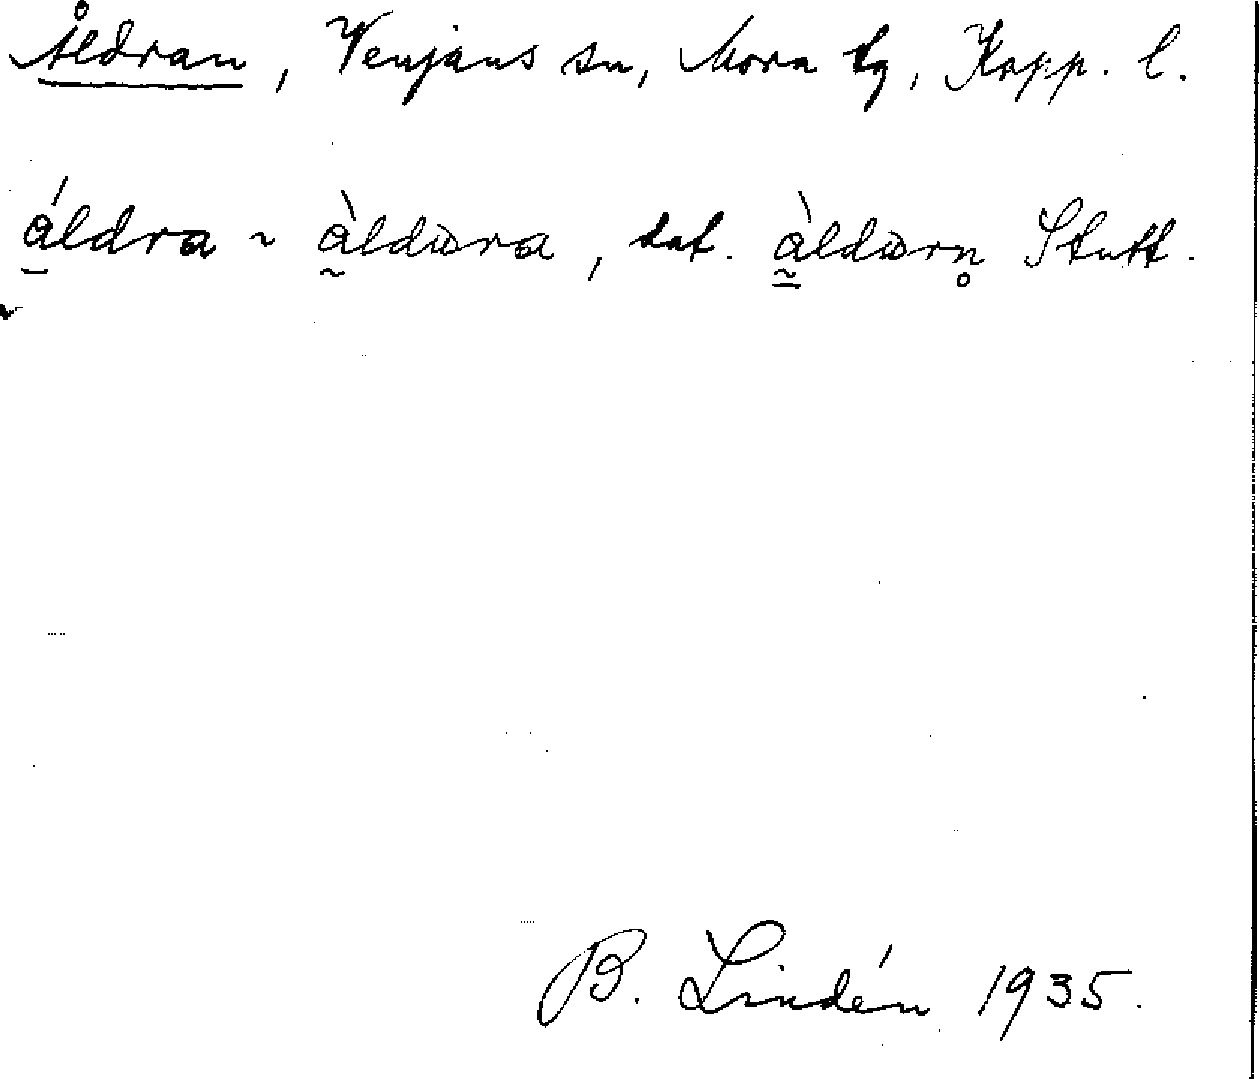 Åldran, Venjans sn, Mora tg, Kopp. l.
á̱ldra ~ à̰ldɯra, dat. à̰̱ldɯrn̥ Stutt.
B. Lindén 1935.